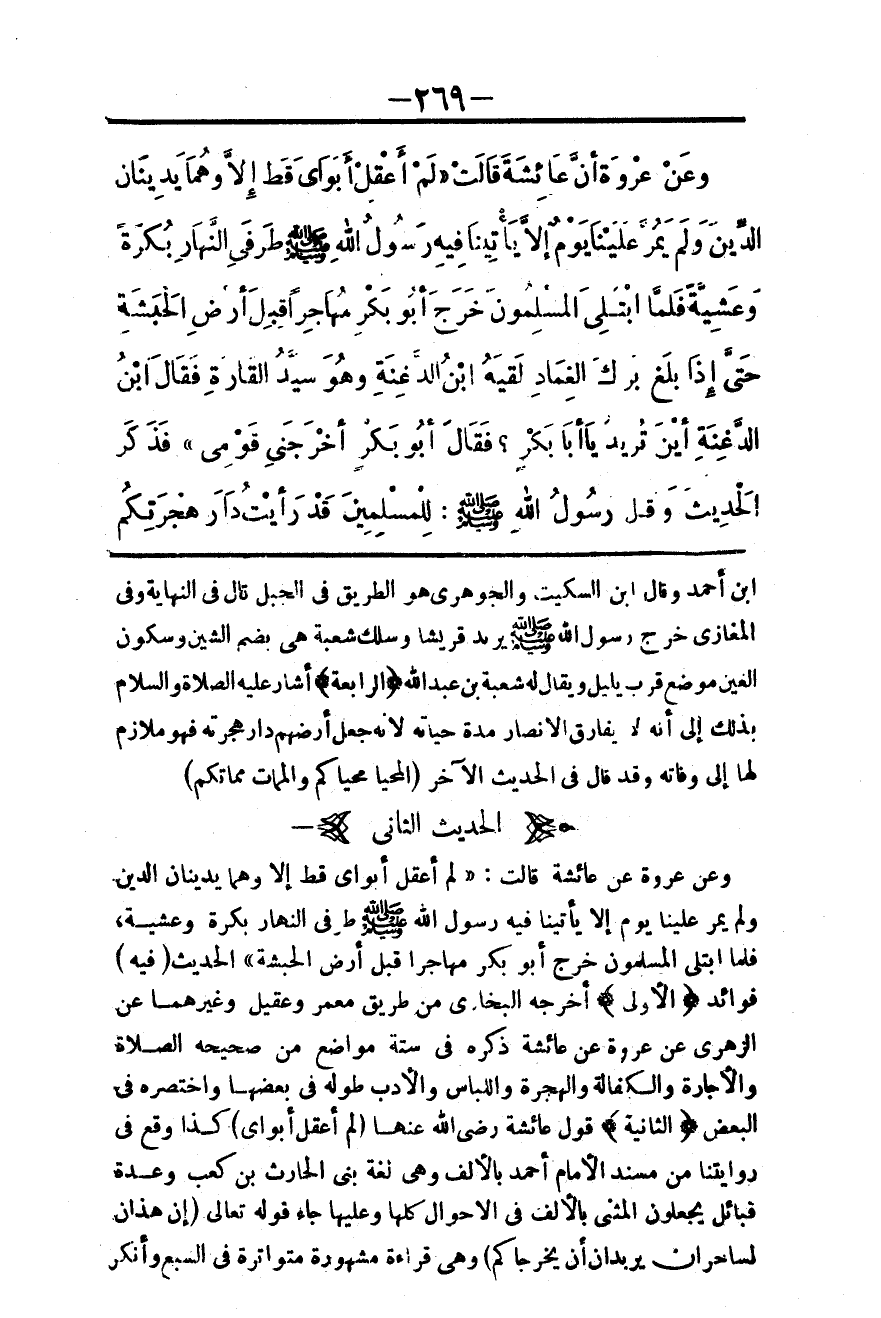 -٢٦٩-
وعَنْ عرْوَةَ أنَّ عَائِشَةَ قَالَتْ «لَمْ أَعْقِلْ أَبَوَاىَ قَط إِلاَّ وهُمَا يَدِينَان
الدِّينَ وَلَم يَمُرَّ عَلَيْنَا يَوْمٌ إلاَّ يَأْتِينَا فِيهِ رَسُولُ اللهِ ﷺ طَرَفَىِ النَّهَارِ بُكرَةً
وَعَشِيَّةً فَلمَّا ابْتُلِىَ المسْلِمُونَ خَرَجَ أَبُو بَكْرٍ مُهَاجِراً قِبَلَ أَرْضِ الحَبَشَةِ
حَتَّى إِذَا بلَغَ بَرْكَ الغِمَادِ لَقِيَهُ ابْنُ الدَّغِنَةِ وهُوَ سيِّدُ القَارَةِ فَقَالَ ابْنُ
الدَّغِنَةِ أيْنَ تُرِيدُ يَا أَبَا بَكْرٍ ؟ فَقَالَ أبُو بَكْرٍ أخْرَجَنِى قَوْمِى » فَذَكَرَ
الْحَدِيثَ وَقَلَ رسُولُ اللهِ ﷺ : لِلْمسْلِمِينَ قَدْ رَأيْتُ دَارَ هِجْرَتِكُم
ابن أحمد وقال ابن السكيت والجوهرى هو الطريق فى الجبل قال فى النهاية وفى
المغازى خرج رسول الله ﷺ يريد قريشا وسلك شعبة هى بضم الشين وسكون
العين موضع قرب يليل ويقال له شعبة بن عبدالله ﴿الرابعة﴾ أشار عليه الصلاة والسلام
بذلك إلى أنه لا يفارق الانصار مدة حياته لانه جعل أرضهم دار هجرته فهو ملازم
لها إلى وفاته وقد قال فى الحديث الآخر (المحيا محياكم والممات مماتكم)
الحديث الثانى
وعن عروة عن عائشة قالت : « لم أعقل أبواى قط إلا وهما يدينان الدين
ولم يمر علينا يوم إلا يأتينا فيه رسول الله ﷺ طرفى النهار بكرة وعشيـة،
فلما ابتلى المسلمون خرج أبو بكر مهاجرا قبل أرض الحبشة» الحديث ( فيه )
فوائد ﴿ الأولى ﴾ أخرجه البخارى من طريق معمر وعقيل وغيرهمـا عن
الزهرى عن عروة عن عائشة ذكره فى ستة مواضع من صحيحه الصـلاة
والأجارة والـكفالة والهجرة واللباس والأدب طوله فى بعضهـا واختصره فى
البعض ﴿ الثانية ﴾ قول عائشة رضى الله عنهـا (لم أعقل أبواى) كـذا وقع فى
روايتنا من مسند الأمام أحمد بالألف وهى لغة بنى الحارث بن كعب وعـدة
قبائل يجعلون المثنى بالألف فى الاحوال كلها وعليها جاء قوله تعالى (إن هذان
لساحران يريدان أن يخرجاكم) وهى قراءة مشهورة متواترة فى السبع وأنكر